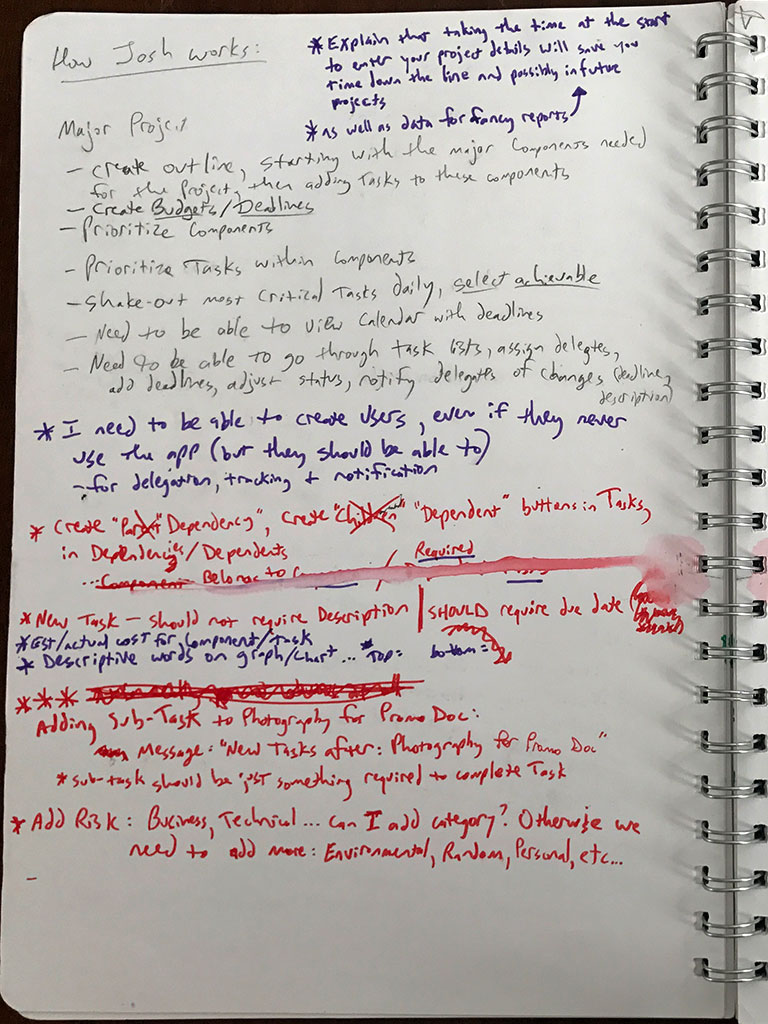 How Josh works:
* Explain that taking the time at the start
to enter your project details will save you
time down the line and possibly in future
projects
* As well as data for fancy reports
Major Project
- Create outline, starting with the major components needed
for the Project, then adding Tasks to these components
- Create Budgets/Deadlines
- Prioritize Components
- Prioritize Tasks within Components
- Shake-out most critical Tasks daily, select achievable
- Need to be able to view Calendar with deadlines
- Need to be able to go through task lists, assign delegtes,
add deadlines, adjust status, notify delegates of changes (deadline,
description)
* I need to be able to create users, even if they never
use the app (but they should be able to)
- for delegation, tracking + notification
* Create "Parent" Dependency", create "Children" "Dependent" buttons in Tasks,
in Dependencies/Dependents
Required
... Component Belongs to
* New Task - should not require Description | SHOULD require due date
* Est/actual cost for Component/Task
* Descriptive words on graph/chart ... * Top: bottom =
***
Adding Sub-Task to Photography for Promo Doc:
Message: "New Tasks after: Photography for Promo Doc"
* sub-task should be just something required to complete Task
* Add Risk: Business, Technical ... can I add category? Otherwise we
need to add more: Environmental, Random, Personal, etc...
-